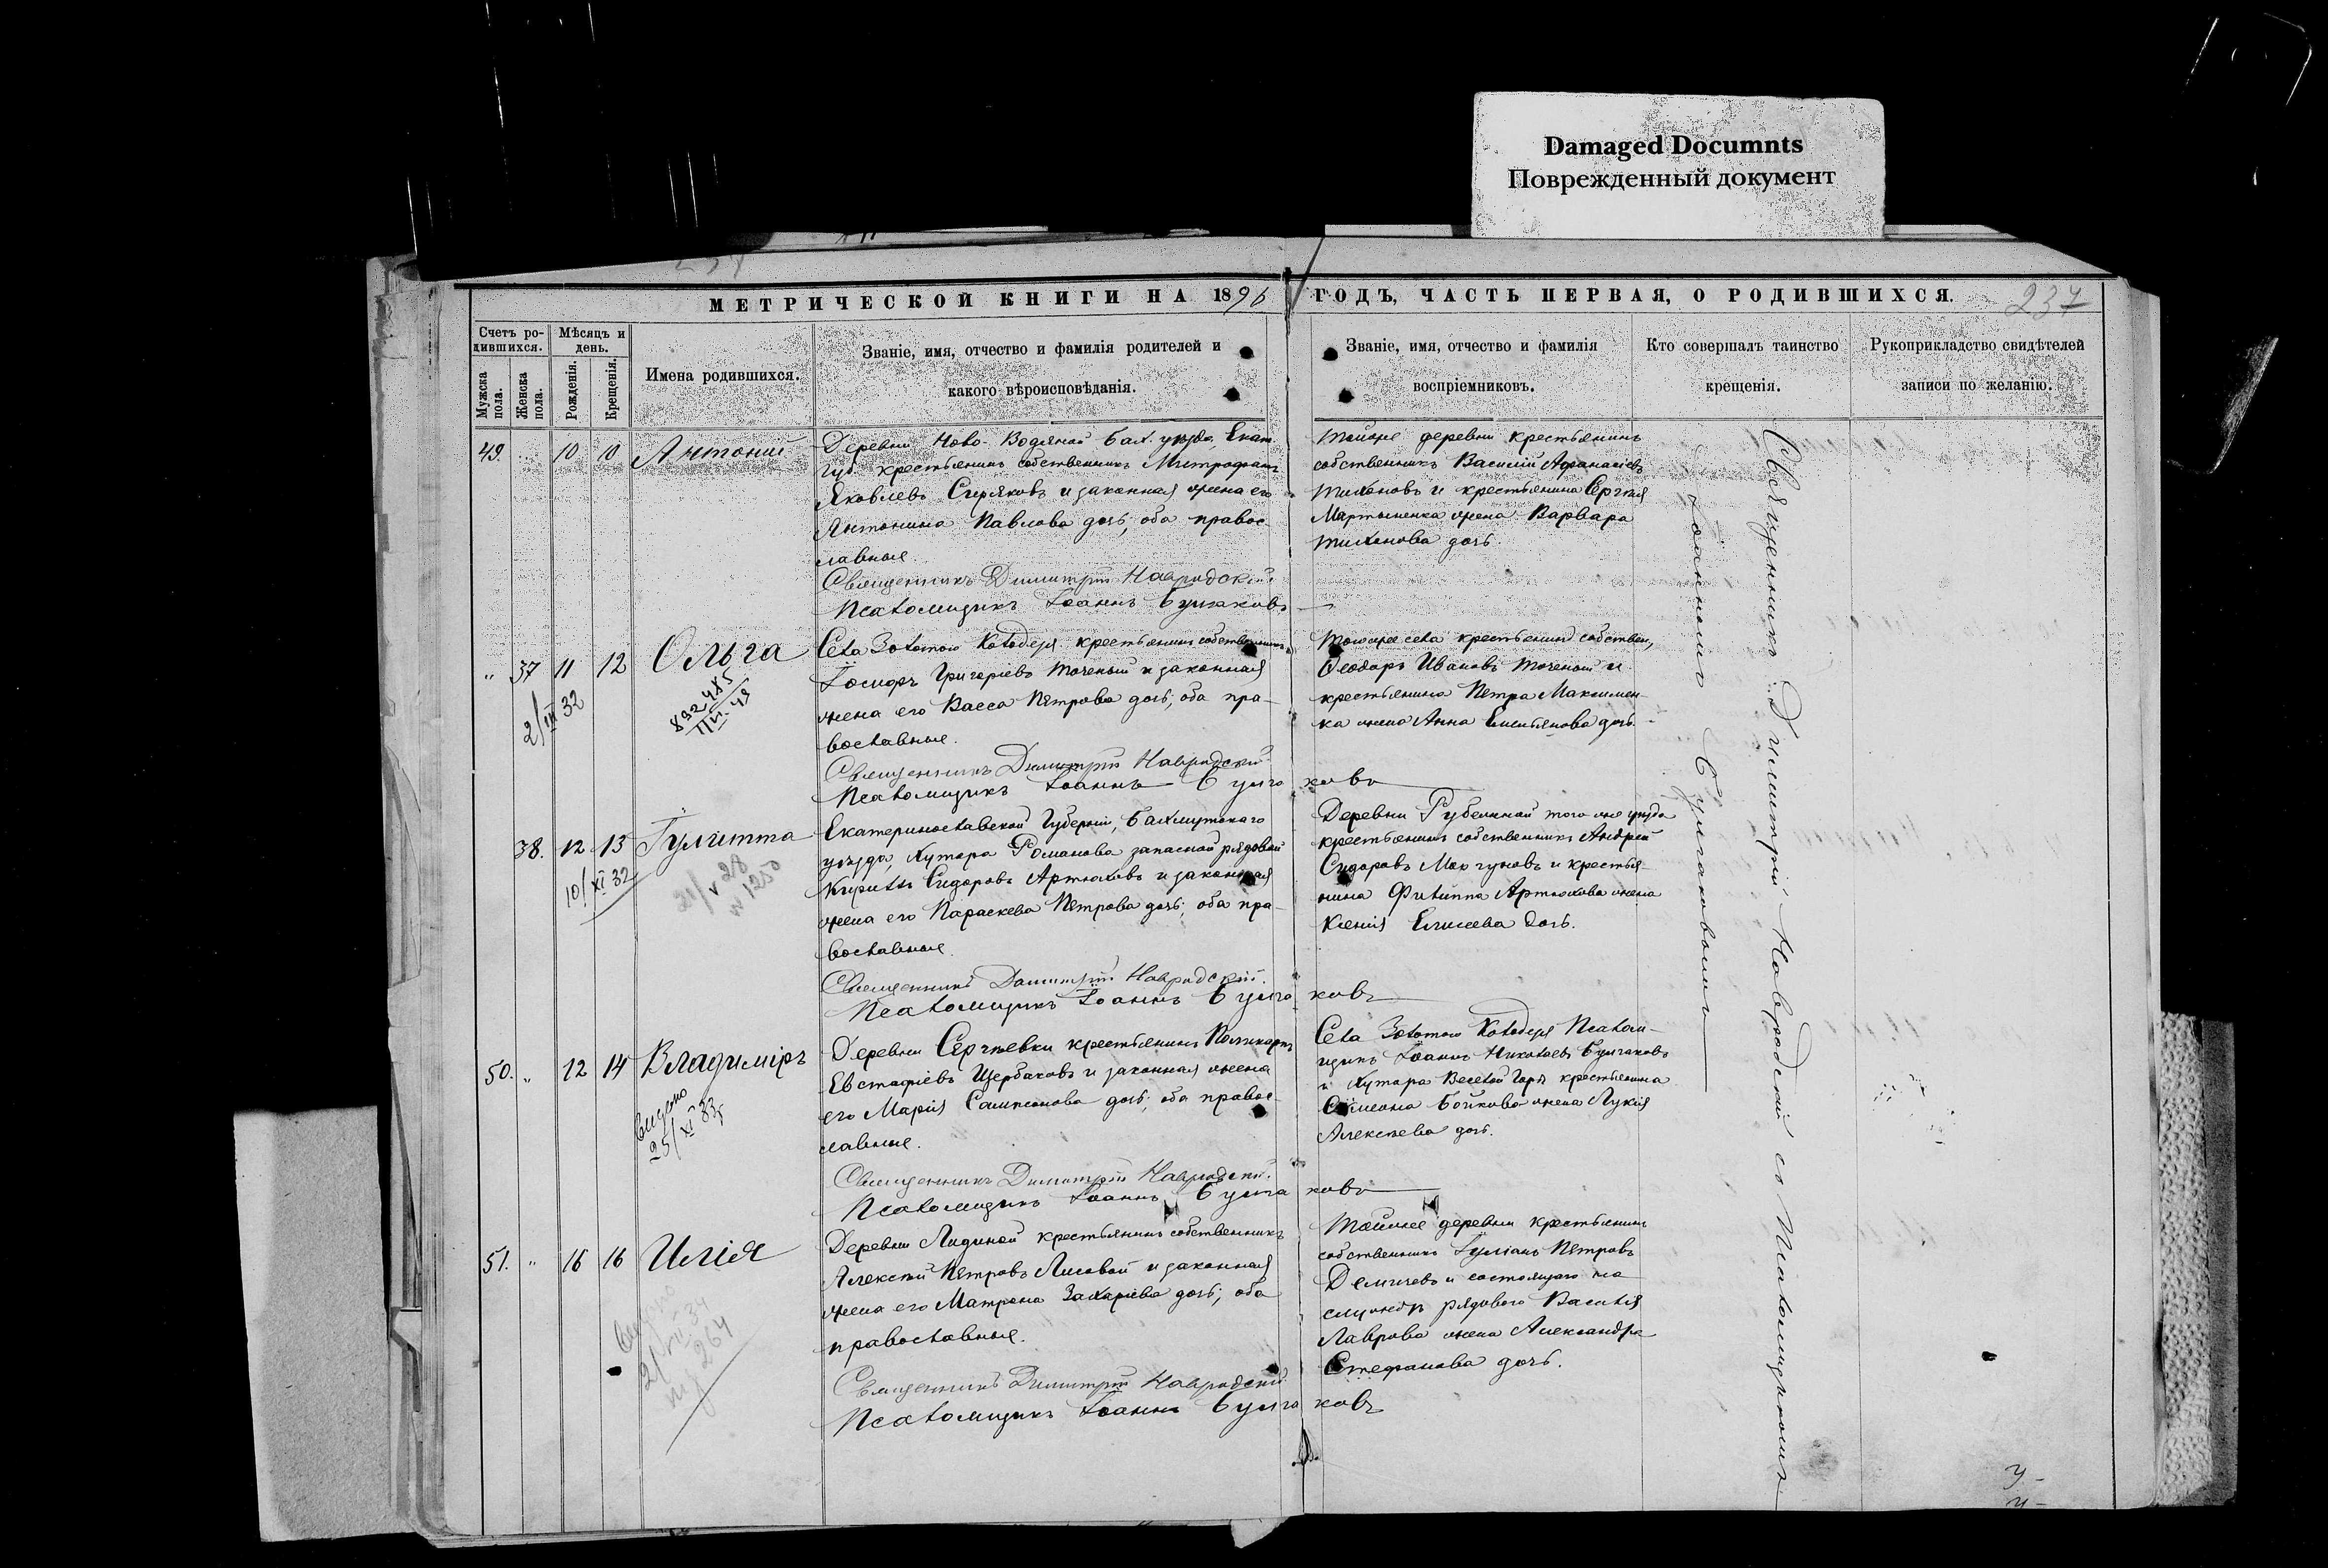 Damaged Documnts
Поврежденный документ
МЕТРИЧЕСКОЙ КНИГИ НА 1896 ГОДЪ, ЧАСТЬ ПЕРВАЯ, О РОДИВШИХСЯ.
237
Счетъ ро-
дившихся.
Мужска
пола.
Женска
пола.
Мѣсяцъ и
день.
Рожденія.
Крещенія.
Имена родившихся.
Званіе, имя, отчество и фамилія родителей и
какого вѣроисповѣданія.
Званіе, имя, отчество и фамилія
воспріемниковъ.
Кто совершалъ таинство
крещенія.
Рукоприкладство свидѣтелей
записи по желанію.
49. " 10 10 Антоній
Деревни Ново-Водяной Бах. уѣзда, Екат.
губ. крестьянинъ собственникъ Митрофанъ
Яковлевъ Сиряковъ и законная жена его
Антонина Павлова дочь, оба правос
лавные.
Священникъ Димитрій Навродскій
Псаломщикъ Іоаннъ Булгаковъ
Тойже деревни крестьянинъ
собственникъ Василій Афанасіевъ
Тихоновъ и крестьянина Сергѣя
Мартыненка жена Варвара
Тихонова дочь.
" 37 11 12 Ольга
2/III 32
892485
Села Золотого Колодезя крестьянинъ собственникъ
Іосифъ Григоріевъ Точеный и законная
жена его Васса Петрова дочь, оба пра-
вославные.
Священникъ Димитрій Навродскій
Псаломщикъ Іоаннъ Булгаковъ
Тогоже села крестьянинъ собствен,
Ѳеодоръ Ивановъ Точеный и
крестьянина Петра Максимен-
ка жена Анна Емельянова дочь.
38. 12 13 Іулитта
10/XI 32
21/V 28
№ 1250
Екатеринославской Губерніи, Бахмутскаго
уѣзда, Хутора Романова запасной рядовой
Кириллъ Сидоровъ Артюховъ и законная
жена его Параскева Петрова дочь; оба пра-
вославные.
Священникъ Димитрій Навродскій.
Псаломщикъ Іоаннъ Булгаковъ
Деревни Рубежной того же уѣзда
крестьянинъ собственникъ Андрей
Сидоровъ Моргуновъ и крестья-
нина Филиппа Артюхова жена
Ксенія Елисеева дочь.
50. " 12 14 Владиміръ
Видано
25/XI 33
Деревни Сергѣевки крестьянинъ Поликарпъ
Евстафіевъ Щербаковъ и законная жена
его Марія Сампсонова дочь; оба правос-
лавные.
Священникъ Димитрій Навродскій.
Псаломщикъ Іоаннъ Булгаковъ
Села Золотого Колодезя Псалом-
щикъ Іоаннъ Николаевъ Булгаковъ
и Хутора Веселой Горы крестьянина
Симеона Бойкова жена Лукія
Алексѣева дочь.
51. " 16 16 Илія
Видано
2/VII 34
№ 264
Деревни Лидиной крестьянинъ собственникъ
Алексѣй Петровъ Лисовой и законная
жена его Матрона Захаріева дочь; оба
православные.
Священникъ Димитрій Навродскій
Псаломщикъ Іоаннъ Булгаковъ
Тойже деревни крестьянинъ
собственникъ Іуліанъ Петровъ
Демичевъ и состоящаго на
службѣ рядового Василія
Лаврова жена Александра
Стефанова дочь.
Священникъ Димитрій Навродскій съ Псаломщикомъ
Іоанномъ Булгаковымъ